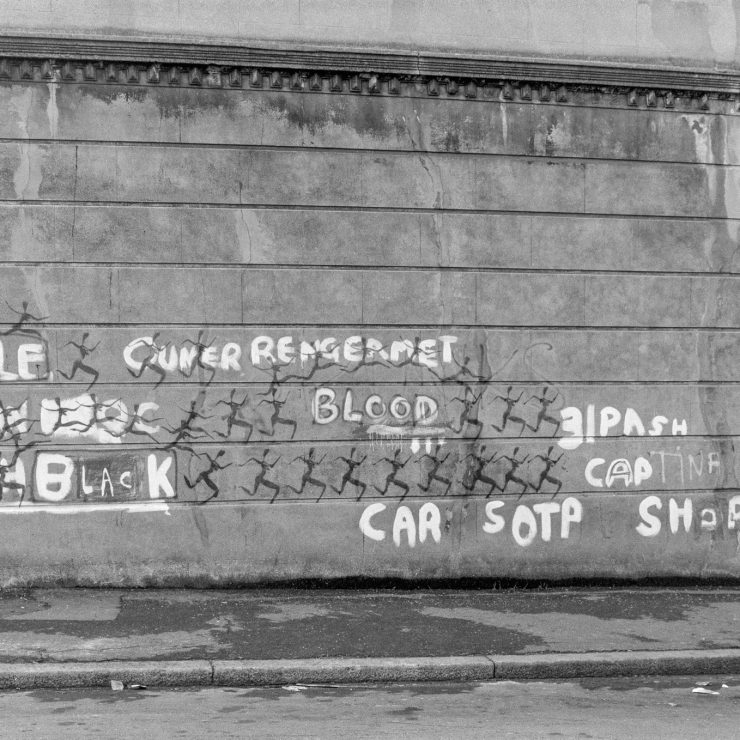 LE CUNER RENGERMET
BLOOD !!!
3!PASH
BLACK CAPTINA
CAR SOTP SHOP